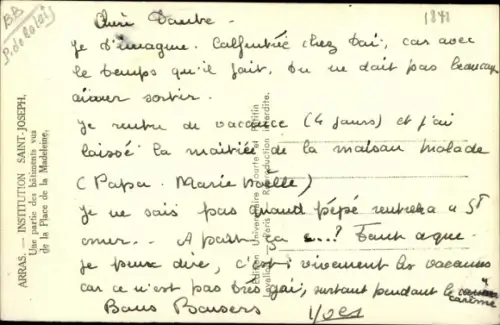 BB
P. de Calais
1841
Chère Tante -
Je t'imagine. Calfeutrée chez toi, car avec
le temps qu'il fait, tu ne dois pas beaucoup
aimer sortir.
Je rentre de vacance (4 jours) et j'ai
laissé la moitiée de la maison malade
(Papa. Marie Noëlle)
Je ne sais pas quand pépé rentrera à St
omer... A part ça ...? Tout ce que
je peux dire, c'est : vivement les vacances
car ce n'est pas très gai, surtout pendant le
carême
Bons Baisers Yves
ARRAS. — INSTITUTION SAINT-JOSEPH.
Une partie des bâtiments vus
de la Place de la Madeleine.
Edition Universitaire Tourte et Petitin
Levallois Paris Reproduction Interdite.